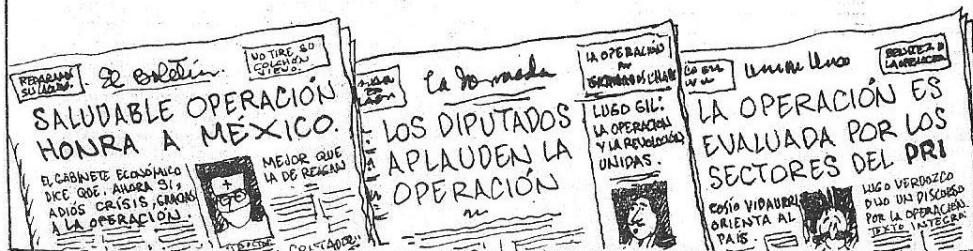 REPARAMOS
SU
El Boletín
NO TIRE SU
COLCHÓN
VIEJO.
SALUDABLE OPERACIÓN
HONRA A MÉXICO.
EL GABINETE ECONÓMICO
DICE QUE, AHORA SI,
ADIÓS CRISIS, GRACIAS
A LA OPERACIÓN.
MEJOR QUE
LA DE REAGAN
La Jornada
LA OPERACIÓN
POR
LOS DIPUTADOS
APLAUDEN LA
OPERACIÓN
LUGO GIL:
LA OPERACIÓN
Y LA REVOLUCIÓN,
UNIDAS.
unomásuno
LA OPERACIÓN ES
EVALUADA POR LOS
SECTORES DEL PRI
COSÍO VIDAURRI
ORIENTA AL
PAÍS.
LUGO VERDUZCO
DIJO UN DISCURSO
POR LA OPERACIÓN.
TEXTO INTEGRO